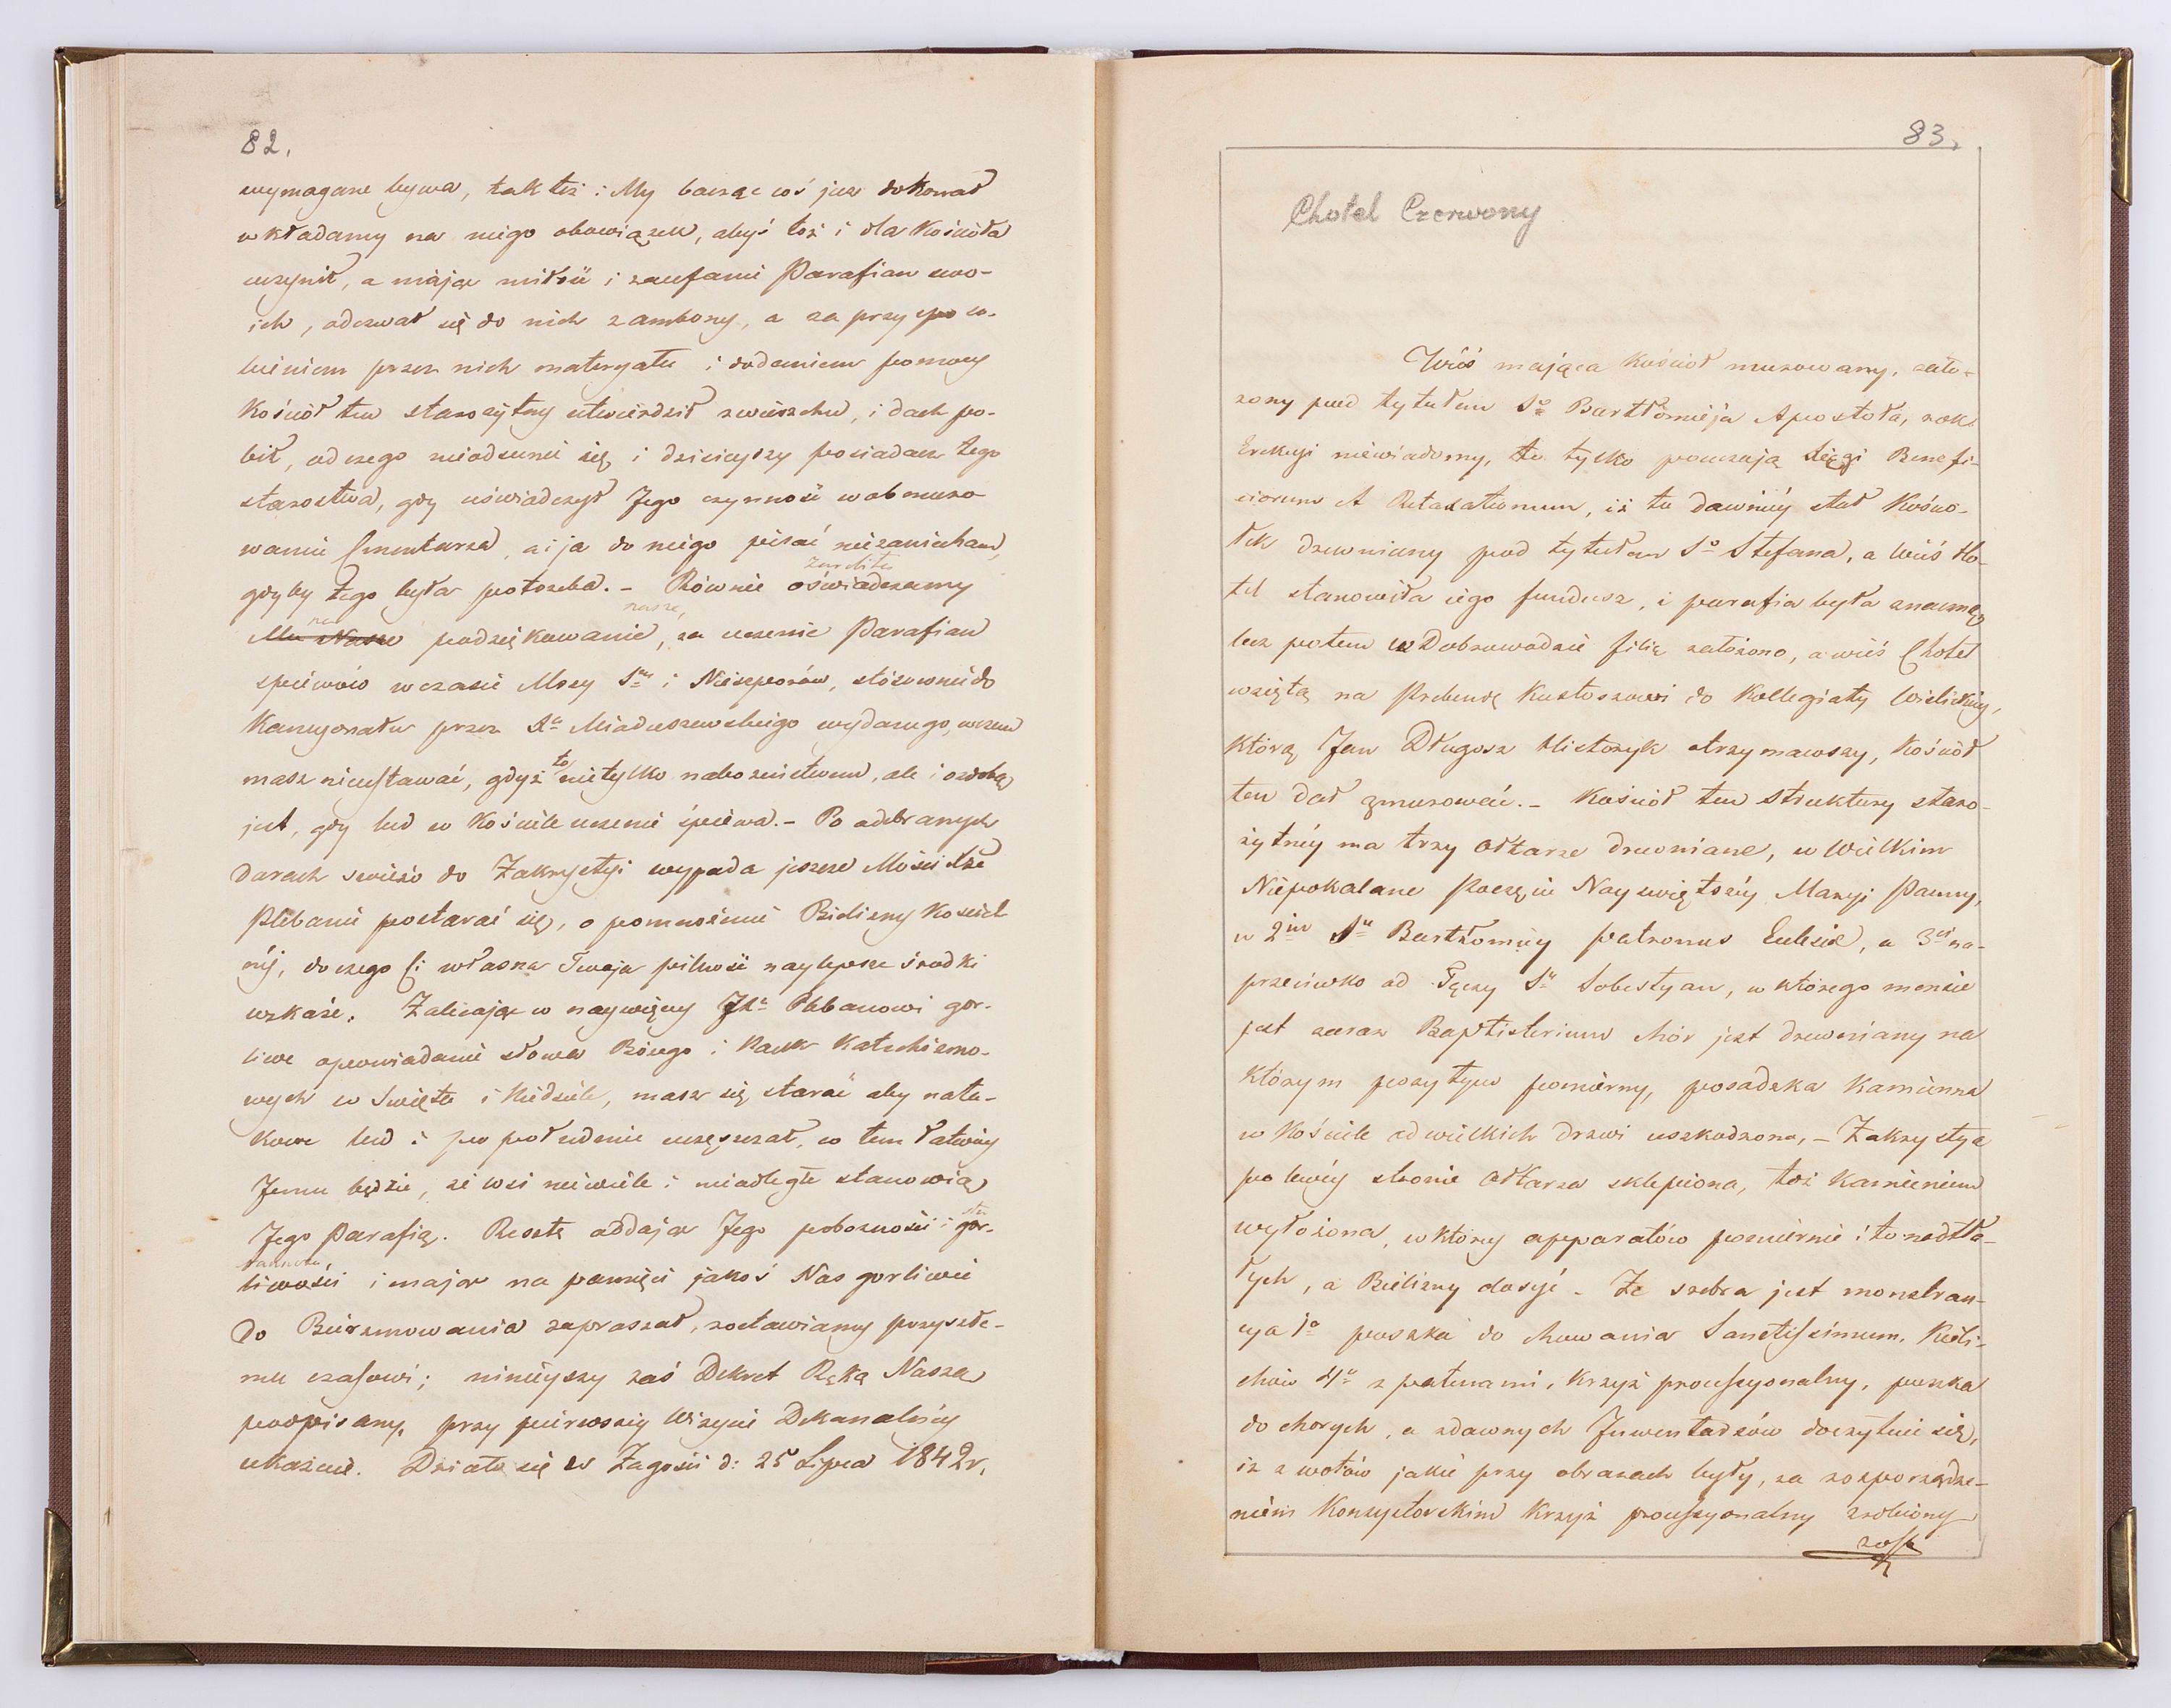 82.
wymagane bywa, tak też i My bacząc coś już dokonał
wkładamy na niego obowiązek, abyś toż i dla Kościoła
uczynił, a mając miłość i zaufanie Parafian swo-
ich, odezwał się do nich z ambony, a za przyspo so-
bieniem przez nich materyału i dodaniem pomocy
Kościół ten starożytny utwierdził z wierzchu, i dach po-
bił, od czego nieodsunie się i dzisiejszy posiadacz tego
starostwa, gdy uświadczył Jego czynność w obmuro-
waniu Cmentarza, a i ja do niego pisać niezaniecham,
gdyby tego była potrzeba. - Równie oświadczamy
nasze,
podziękowanie, za uczenie Parafian
spiewów w czasie Mszy S. i Nieszporów, stósownie do
Kancyonału przez X. Mioduszewskiego wydanego, uczem
masz nieustawać, gdyż to nietylko nabożeństwem, ale i ozdobą
jest, gdy lud w Kościele uczenie śpiewa. - Po odebranych
Darach świeżo do Zakrystyi wypada jeszcze Mości Xże
Plebanie postarać się, o pomnożenie Bielizny Kościel
néj, do czego Ci własna Twoja pilność naylepsze środki
wskaże. Zalecając w naywięcéj JX. Plebanowi gor-
liwe opowiadanie słowa Bożego i Nauk Katechizmo-
wych w Święta i Niedziele, masz się starać aby nata-
kowe lud i po południu uczęszczał, co tem łatwiéj
Jemu będzie, że wsi niewiele i nieodległe stanowią
Jego Parafią. Resztę oddając Jego pobożności i gor-
liwości i mając na pamięci jakoś Nas gorliwie
do Bierzmowania zapraszał, zostawiamy przyszłe-
mu czasowi; niniéyszy zaś Dekret Ręką Naszą
podpisany, przy pierwszéj Wizycie Dekanalnéy
okazać. Działo się w Zagości d: 25 Lipca 1842 r.
83.
Chotel Czerwony
Wieś mająca Kościoł murowany, zało-
żony pod tytułem So Bartłomieja Apostoła, rok
Erekcyi niewiadomy, to tylko pouczają Xięgi Benefi-
ciorum et Retaxationum, iż tu dawniéy stał Kośció-
łek drewniany pod tytułem So Stefana, a wieś Ho-
tel stanowiła jego fundusz, i parafia była znaczną
lecz potem w Dobrowodzie filię założono, a wieś Chotel
wziętą na Prebendę Kustoszowi do Kollegiaty Wiślickiéj,
którą Jan Długosz Historyk otrzymawszy, Kościół
ten dał zmurować. - Kościoł ten struktury staro-
żytnéy ma trzy Ołtarze drewniane, w Wielkim
Niepokalane Poczęcie Nayświętszéy Maryi Panny,
w 2im Su Bartłomiéy patronus Ecclesiæ, a 3ci na-
przeciwko od Tęczy Su Sebestyan, w którego mensie
jest zaraz Baptisterium chór jest drewniany na
którym pozytyw pomierny, posadzka kamienna
w Kościele od wielkich drzwi uszkodzona, - Zakrystya
po lewéy stronie Ołtarza sklepiona, też kamieniem
wyłożona, w któréy apparatów pomiernie i to nadsta-
łych, a Bielizny dosyć. Ze srebra jest monstran-
cya 1a puszka do chowania Sanctissimum, Kieli-
chów 4 z patenami, Krzyż processyonalny, puszka
do chorych, a z dawnych Inwentarzów doczytuie się,
iż z wotów jakie przy obrazach były, za rozporządze-
niem Konsystorskim Krzyż processyonalny zrobiony
zost